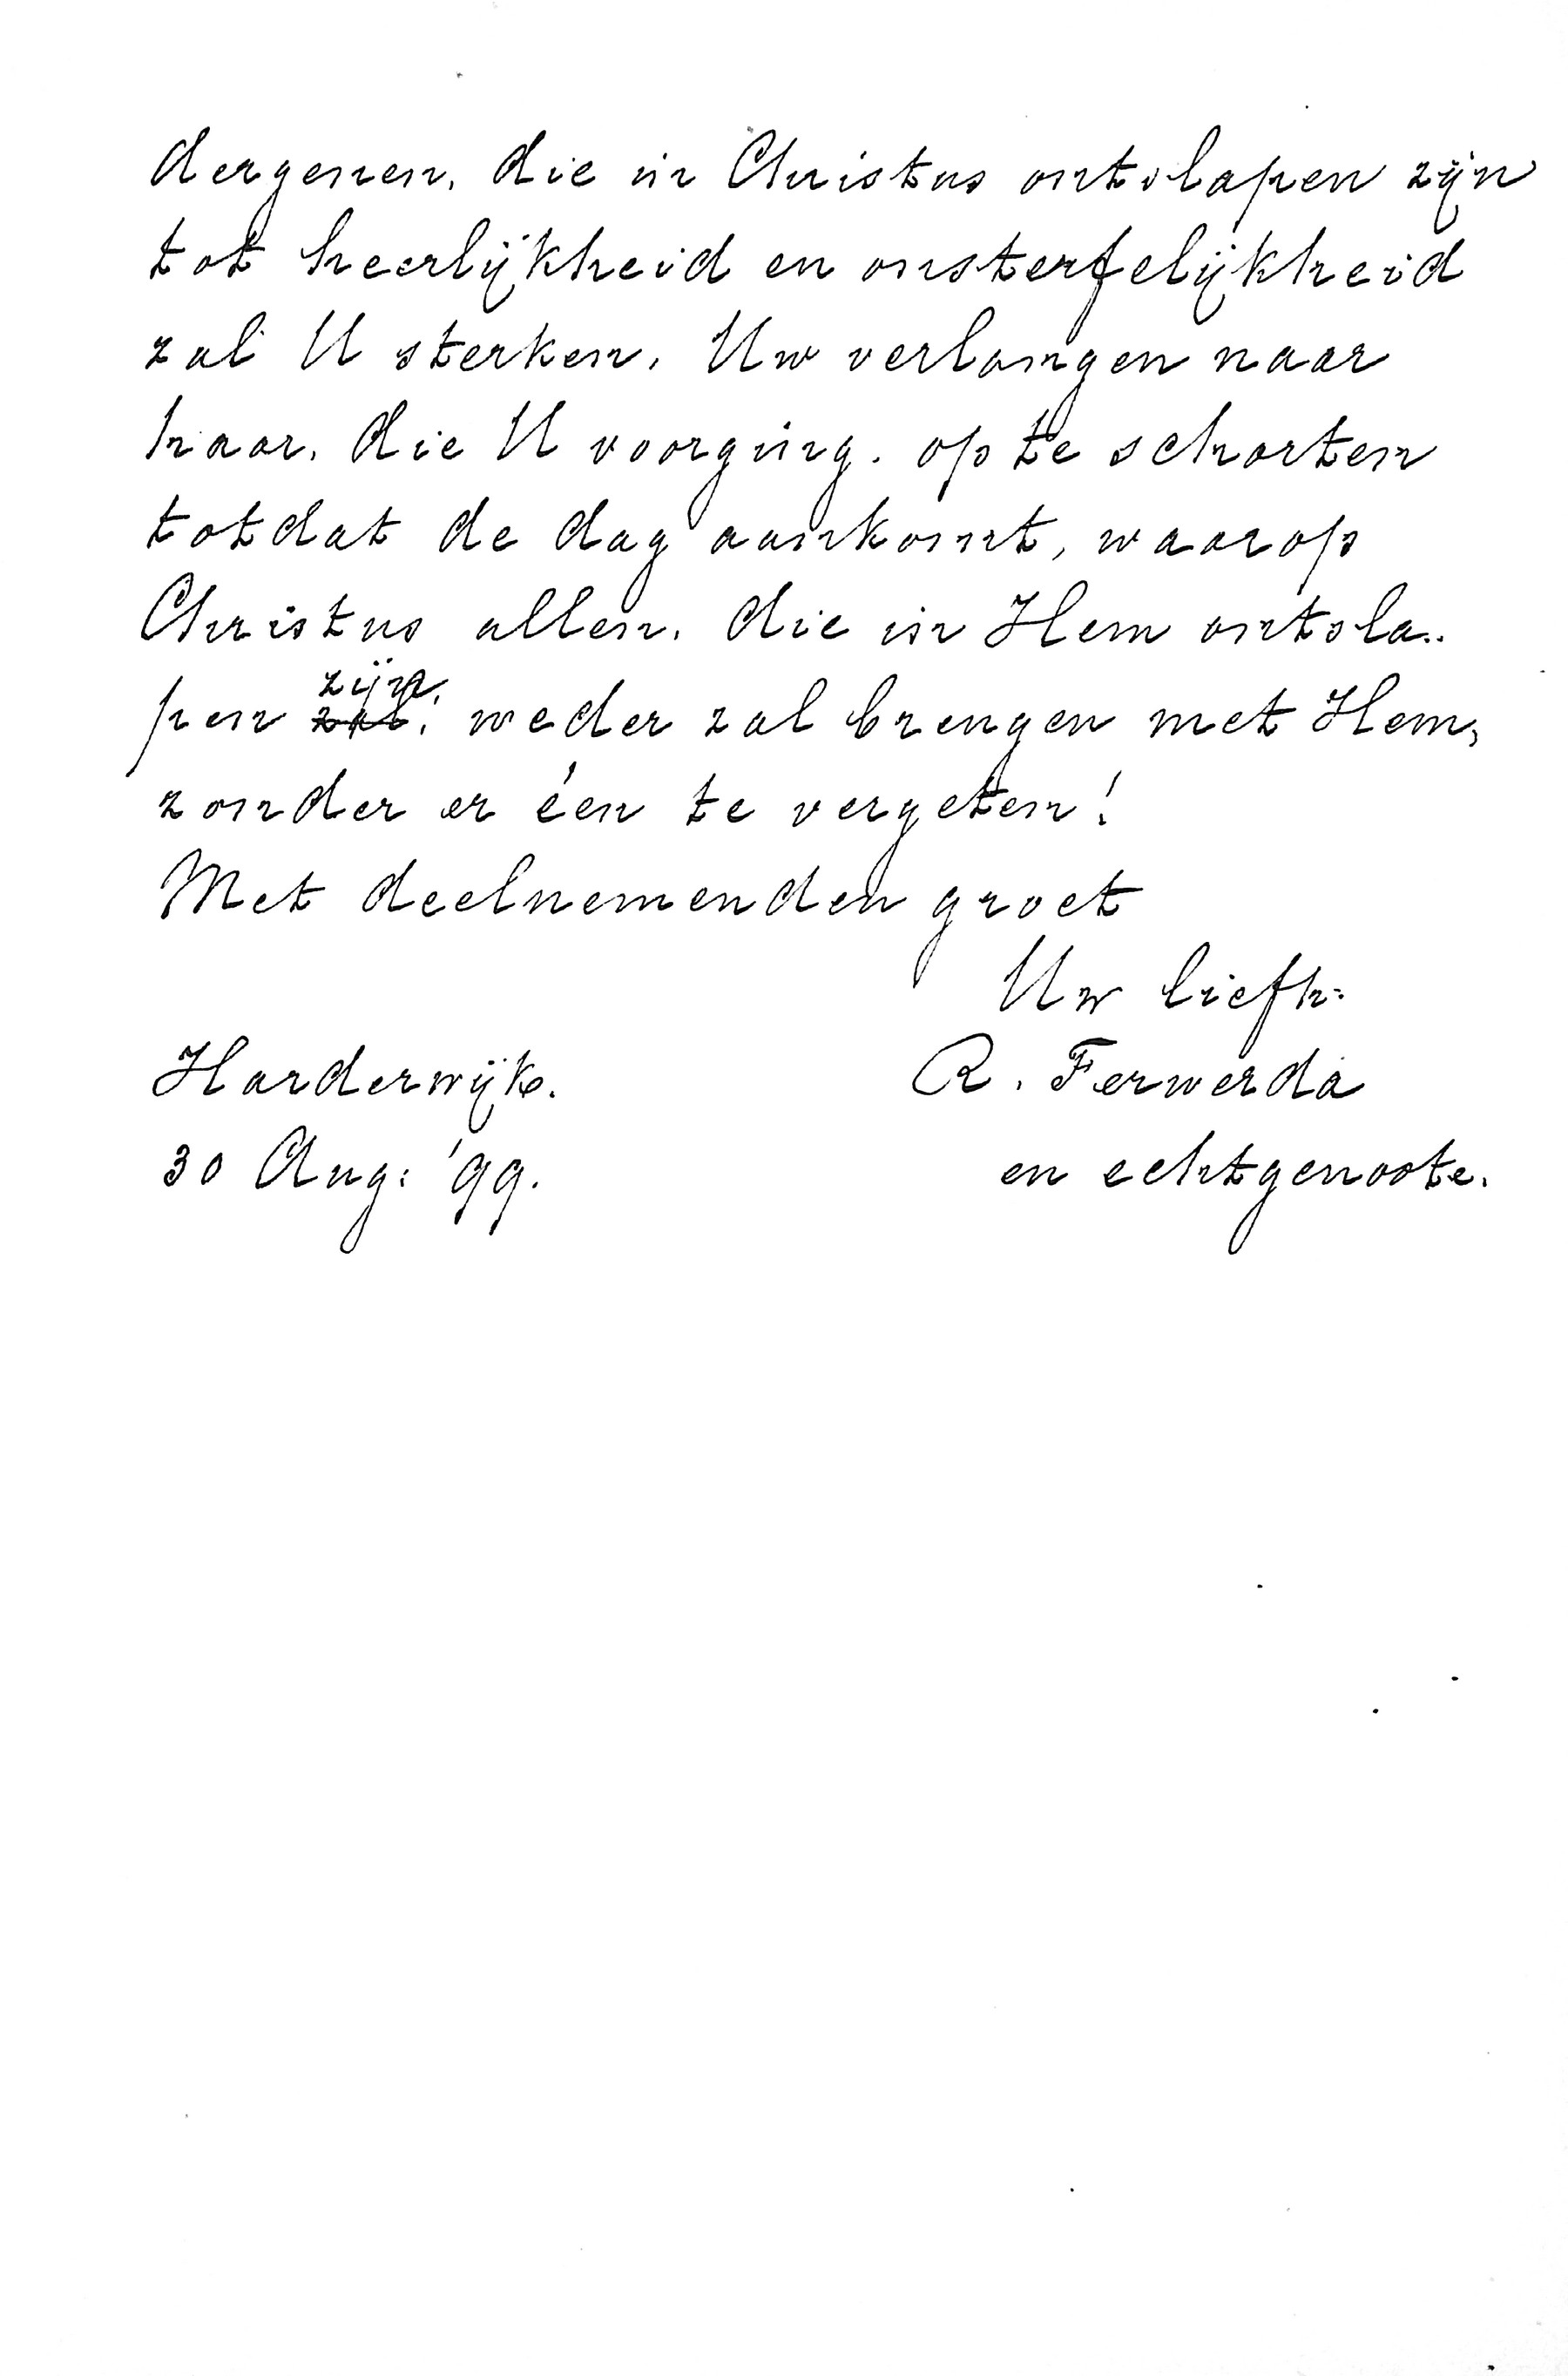 dergenen, die in Christus ontslapen zijn
tot heerlijkheid en onsterfelijkheid
zal U sterken, Uw verlangen naar
haar, die U voorging, op te schorten
totdat de dag aankomt, waarop
Christus allen, die in Hem ontsla..
zijn,
pen zal, weder zal brengen met Hem,
zonder er éen te vergeten!
Met deelnemenden groet
Uw liefh:
Harderwijk. R. Ferwerda
30 Aug: '99. en echtgenoote.